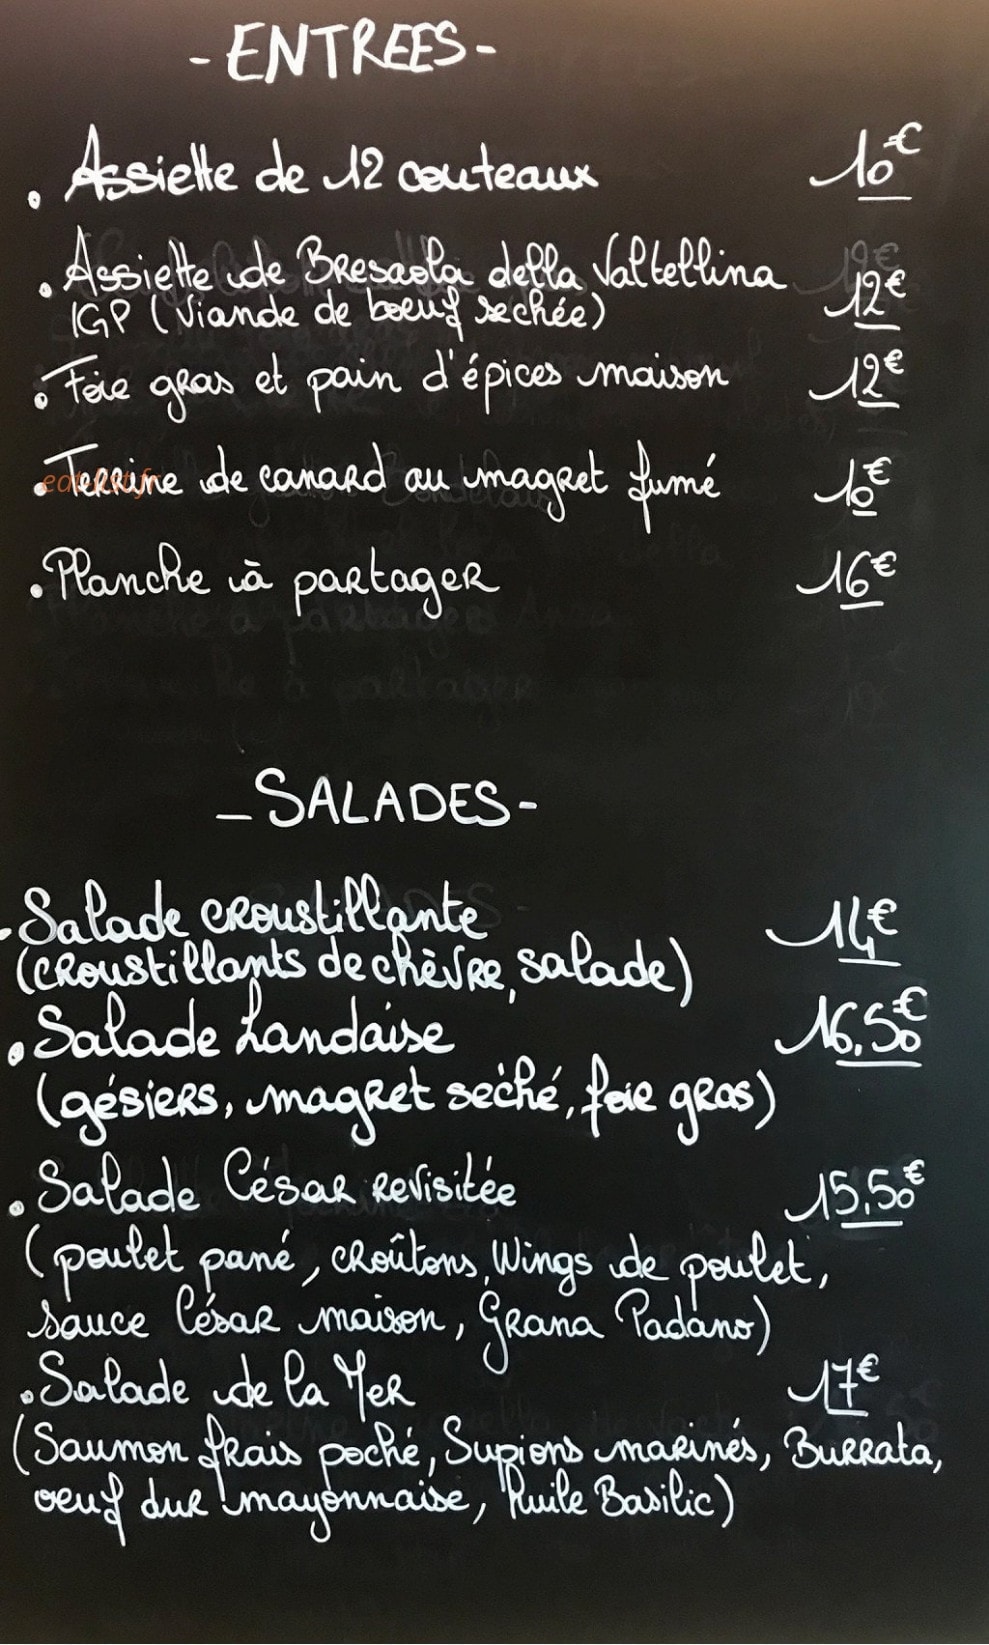 - ENTREES -
. Assiette de 12 couteaux 10€
. Assiette de Bresaola della Valtellina
IGP (Viande de boeuf sechée) 12€
. Foie gras et pain d'épices maison 12€
. Terrine de canard au magret fumé 10€
. Planche à partager 16€
- SALADES -
. Salade croustillante 14€
(croustillants de chèvre, salade)
. Salade Landaise 16,50€
(gésiers, magret séché, foie gras)
. Salade César revisitée 15,50€
(poulet pané, croûtons, Wings de poulet,
sauce César maison, Grana Padano)
. Salade de la Mer 17€
(Saumon frais poché, Supions marinés, Burrata,
oeuf dur mayonnaise, huile Basilic)